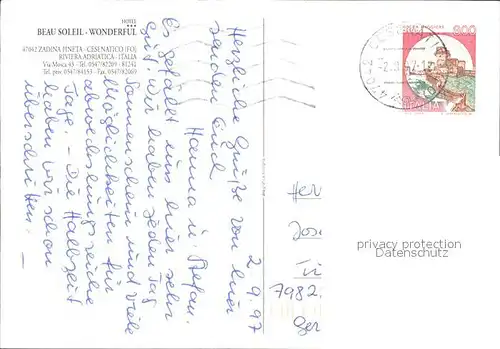 HOTEL
BEAU SOLEIL - WONDERFUL
47042 ZADINA PINETA - CESENATICO (FO)
RIVIERA ADRIATICA - ITALIA
Via Mosca 43 - Tel. 0547/82209 - 81241
Tel. priv. 0547/84153 - Fax 0547/82069
2.9.97
Herzliche Grüße von hier
senden Euch
Hanna u. Stefan.
Es gefällt uns hier sehr
gut. Wir haben jeden Tag
Sonnenschein und viele
Möglichkeiten für
abwechslungsreiche
Tage. - Die Halbzeit
haben wir schon
überschritten.
800
Her
Jose
7982
Ger
privacy protection
Datenschutz